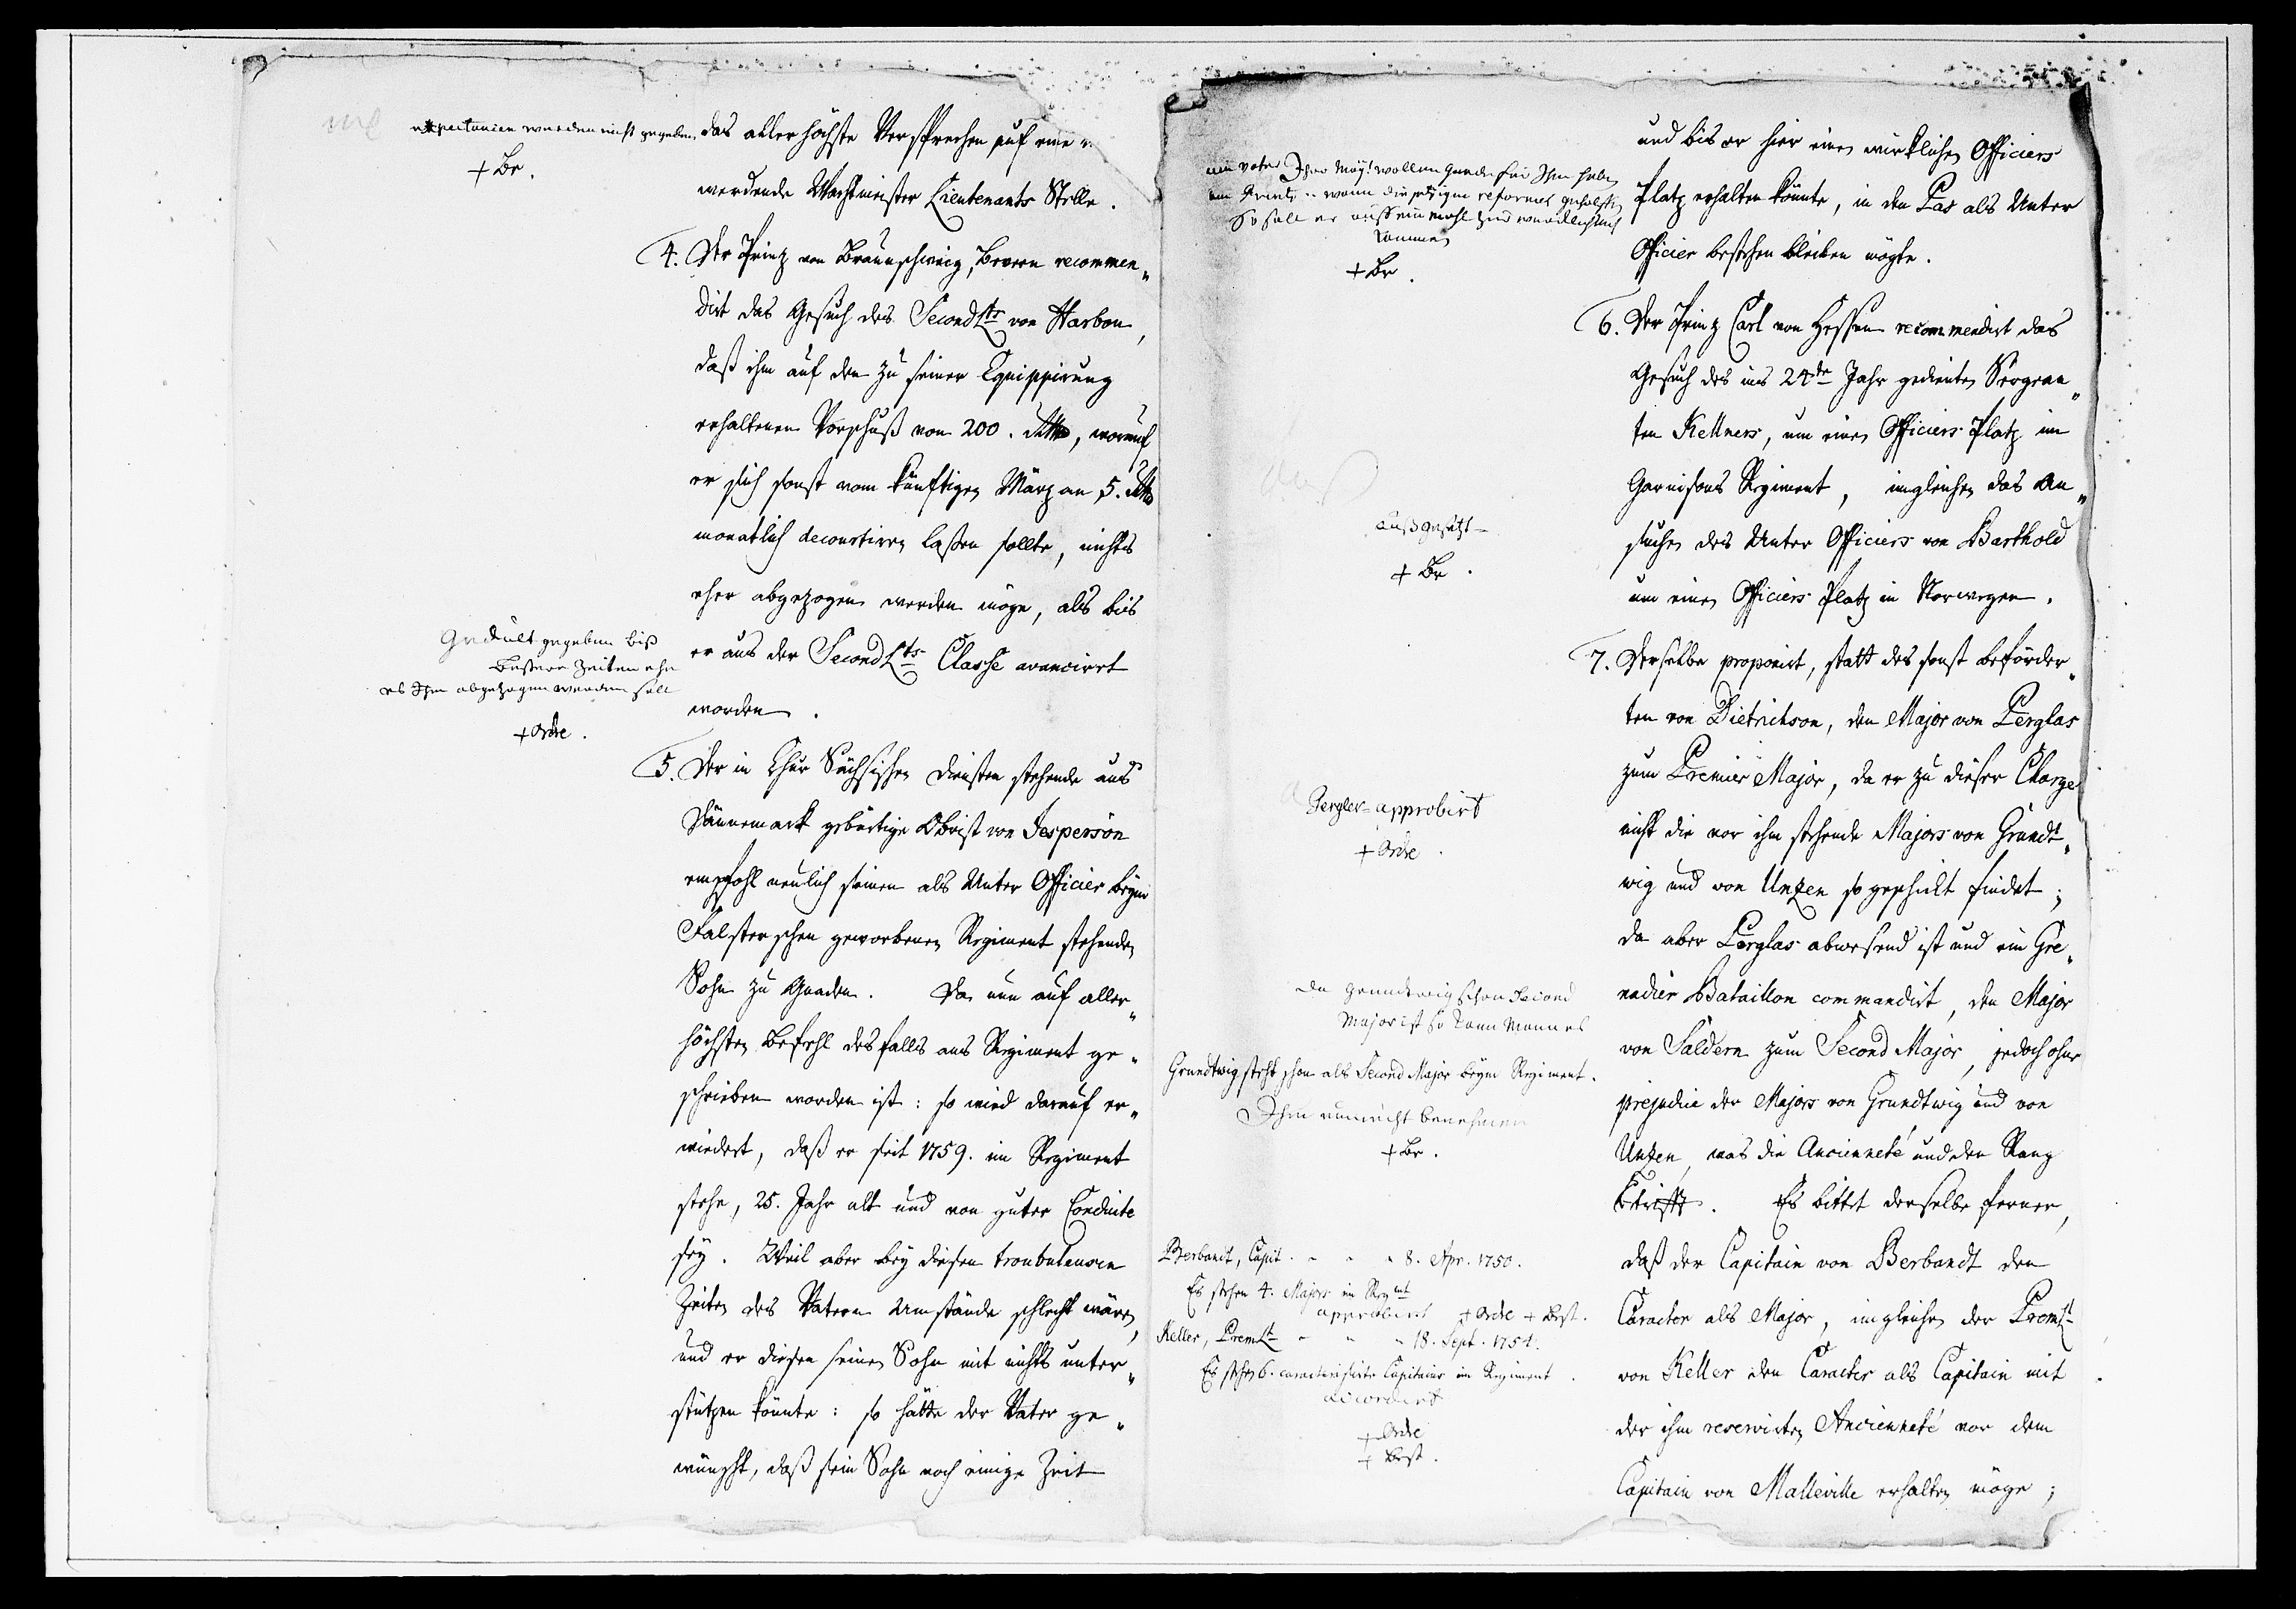 expectancien werden nicht gegeben.
+ Br.
das allerhöchste Versprechen auf eine
werdende Wachtmeister Lieutenants Stelle.
4. Der Prinz von Braunschweig, Bevern recommen„
dirt das Gesuch des SecondLts von Harbou,
daß ihm auf den zu seiner Equippirung
erhaltenen Vorschuß von 200. Rthlr, worauf
er sich sonst vom künftigen März an 5. Rthlr
monatlich decourtiren laßen sollte, nichts
eher abgezogen werden möge, als bis
er aus der SecondLts Classe avancirt
worden.
Gedult gegeben biß
bessere Zeiten ehe
es Ihm abgezogen werden soll
+ Ordre.
5. Der in Chur Sächsischen Diensten stehende aus
Dännemark gebürtige Obrist von Jesperson
empfohl neulich seinen als Unter Officier beym
Falsterschen geworbenen Regiment stehenden
Sohn zu Gnaden. Da nun auf aller„
höchsten Befehl desfalls ans Regiment ge„
schrieben worden ist: so wird darauf er„
wiedert, daß er seit 1759. im Regiment
stehe, 25. Jahr alt und von guter Conduite
sey. Weil aber bey diesen troubulensen
Zeiten des Vatern Umstände schlecht wären,
und er diesen seinen Sohn mit nichts unter„
stützen könnte: so hätte der Vater ge„
wünscht, daß sein Sohn noch einige Zeit
und bis er hier einen würklichen Officiers
Platz erhalten könnte, in den Pas als Unter
Officier bestehen bleiben mögte.
Ihro May: wollen gnade für Ihm haben
wann die jetzigen reformes geholfen
So soll er auch ein mahl zum
kommen
+ Br.
6. Der Prinz Carl von Hessen recommendirt das
Gesuch des ins 24de Jahr gedienten Sergean„
ten Kellners, um einen Officiers Platz im
Garnisons Regiment, imgleichen das An„
suchen des Unter Officiers von Barthold
um einen Officiers Platz in Norwegen.
außgesetzt
+ Br.
7. Derselbe proponirt, statt des sonst beförder„
ten von Dietrichson, den Major von Perglas
zum Premier Major, da er zu dieser Charge
nicht die vor ihm stehende Majors von Grundt„
wig und von Unzen so geschickt findet;
da aber Perglas abwesend ist und ein Gre„
nadier Bataillon commandirt, den Major
von Saldern zum Second Major, jedoch ohne
prejudice der Majors von Grundtwig und von
Unzen, was die Ancienneté und den Rang
btrifft. Es bittet derselbe ferner,
daß der Capitain von Berbandt den
Caracter als Major, imgleichen der PremLt
von Keller den Caracter als Capitain mit
der ihm reservirten Ancienneté vor dem
Capitain von Malleville erhalten möge;
Pergler approbirt
+ Ordre.
Da grundtwig schon Second
Major ist so kann Man es
Grundtwig steht schon als Second Major beym Regiment.
Ihm nun nicht benehmen
+ Br.
Berbandt, Capit. „ „ „ 8. Apr. 1750.
Es stehen 4. Majors im Regmt
approbirt + Ordre + Best.
Keller, PremLt „ „ „ 18. Sept. 1754.
Es stehen 6. caracterisirte Capitains im Regiment.
accordirt
+ Ordre
+ Best.